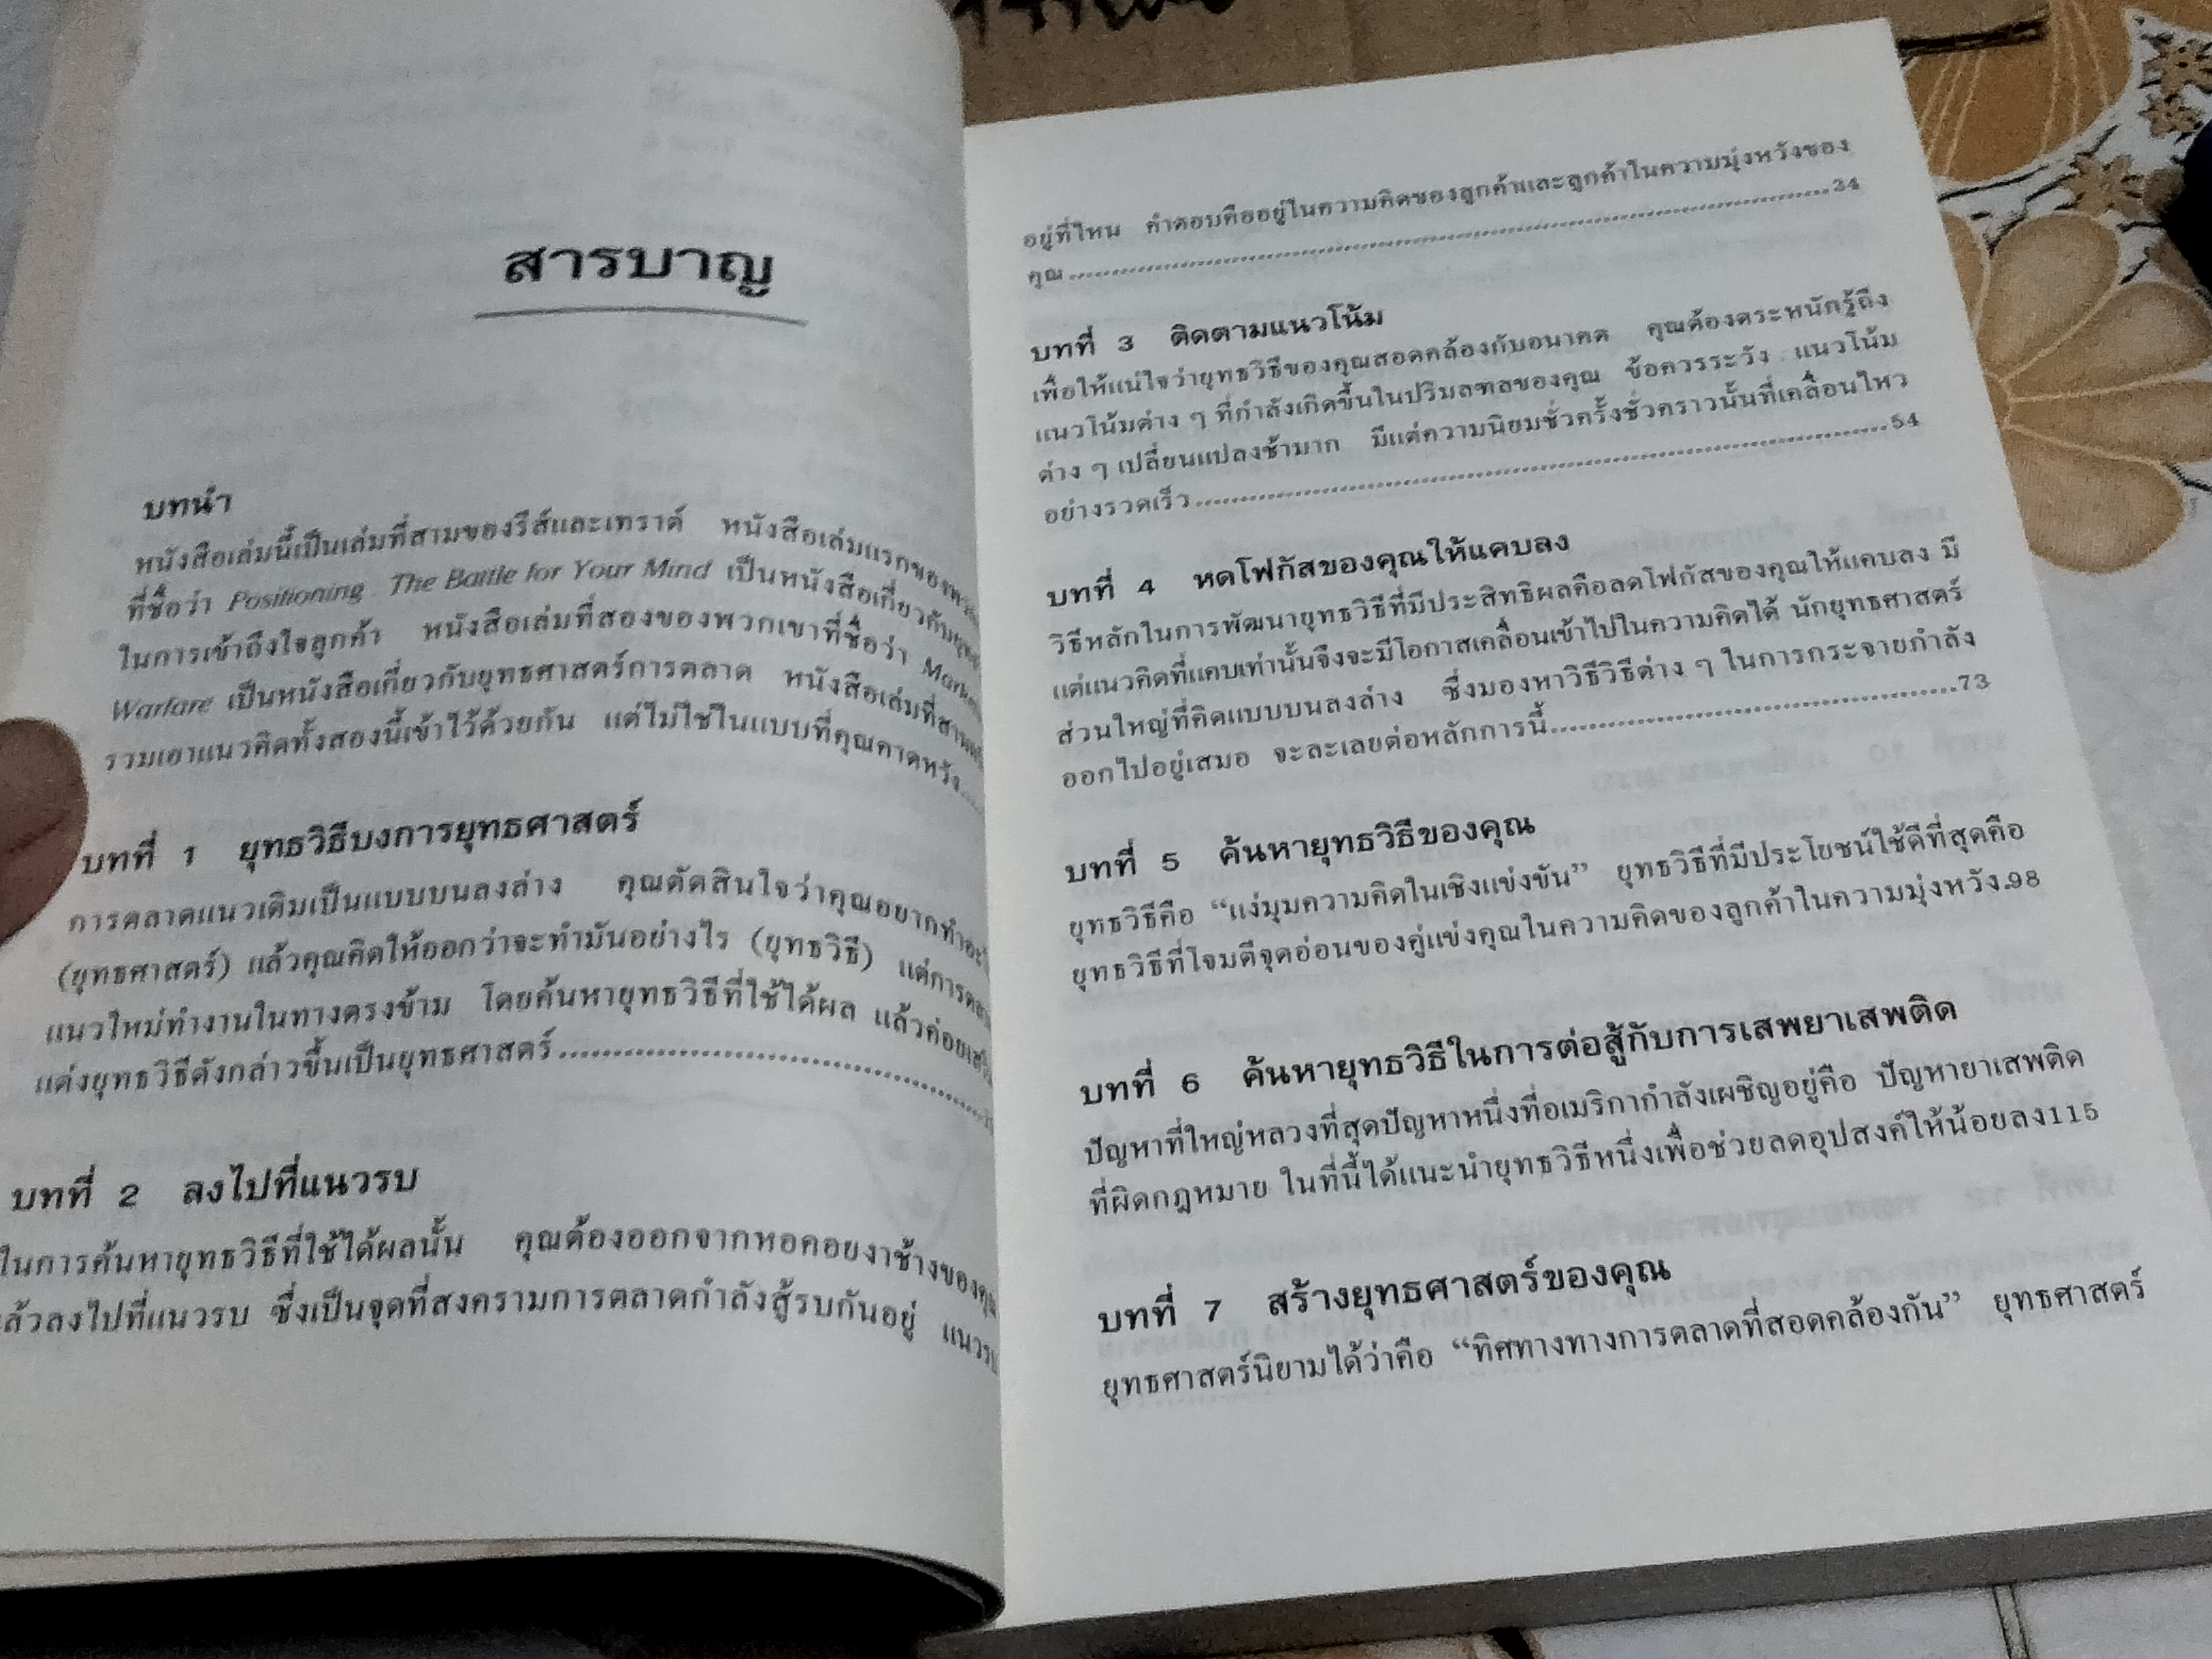 สารบาญ
บทนำ
หนังสือเล่มนี้เป็นเล่มที่สามของรีส์และเทราต์ หนังสือเล่มแรกของ
ที่ชื่อว่า Positioning The Battle for Your Mind เป็นหนังสือเกี่ยวกับ
ในการเข้าถึงใจลูกค้า หนังสือเล่มที่สองของพวกเขาที่ชื่อว่า
Warfare เป็นหนังสือเกี่ยวกับยุทธศาสตร์การตลาด หนังสือเล่มที่สาม
รวมเอาแนวคิดทั้งสองนี้เข้าไว้ด้วยกัน แต่ไม่ใช่ในแบบที่คุณคาดหวัง.....
บทที่ 1 ยุทธวิธีบงการยุทธศาสตร์
การตลาดแนวเดิมเป็นแบบบนลงล่าง คุณตัดสินใจว่าคุณอยากทำ
(ยุทธศาสตร์) แล้วคุณคิดให้ออกว่าจะทำมันอย่างไร (ยุทธวิธี)
แนวใหม่ทำงานในทางตรงข้าม โดยค้นหายุทธวิธีที่ใช้ได้ผล แล้วค่อย
แต่งยุทธวิธีดังกล่าวขึ้นเป็นยุทธศาสตร์..........
บทที่ 2 ลงไปที่แนวรบ
ในการค้นหายุทธวิธีที่ใช้ได้ผลนั้น คุณต้องออกจากหอคอยงาช้างของคุณ
ล้วลงไปที่แนวรบ ซึ่งเป็นจุดที่สงครามการตลาดกำลังสู้รบกันอยู่ แนวรบ
อยู่ที่ไหน คำตอบคืออยู่ในความคิดของลูกค้าและลูกค้าในความมุ่งหวังของ
คุณ..........34
บทที่ 3 ติดตามแนวโน้ม
เพื่อให้แน่ใจว่ายุทธวิธีของคุณสอดคล้องกับอนาคต คุณต้องตระหนักรู้ถึง
แนวโน้มต่าง ๆ ที่กำลังเกิดขึ้นในปริมลฑลของคุณ ข้อควรระวัง แนวโน้ม
ต่าง ๆ เปลี่ยนแปลงช้ามาก มีแต่ความนิยมชั่วครั้งชั่วคราวนั้นที่เคลื่อนไหว
อย่างรวดเร็ว..........54
บทที่ 4 หดโฟกัสของคุณให้แคบลง
วิธีหลักในการพัฒนายุทธวิธีที่มีประสิทธิผลคือลดโฟกัสของคุณให้แคบลง มี
แต่แนวคิดที่แคบเท่านั้นจึงจะมีโอกาสเคลื่อนเข้าไปในความคิดได้ นักยุทธศาสตร์
ส่วนใหญ่ที่คิดแบบบนลงล่าง ซึ่งมองหาวิธีวิธีต่าง ๆ ในการกระจายกำลัง
ออกไปอยู่เสมอ จะละเลยต่อหลักการนี้..........73
บทที่ 5 ค้นหายุทธวิธีของคุณ
ยุทธวิธีคือ “แง่มุมความคิดในเชิงแข่งขัน” ยุทธวิธีที่มีประโยชน์ใช้ดีที่สุดคือ
ยุทธวิธีที่โจมตีจุดอ่อนของคู่แข่งคุณในความคิดของลูกค้าในความมุ่งหวัง.98
บทที่ 6 ค้นหายุทธวิธีในการต่อสู้กับการเสพยาเสพติด
ปัญหาที่ใหญ่หลวงที่สุดปัญหาหนึ่งที่อเมริกากำลังเผชิญอยู่คือ ปัญหายาเสพติด
ที่ผิดกฎหมาย ในที่นี้ได้แนะนำยุทธวิธีหนึ่งเพื่อช่วยลดอุปสงค์ให้น้อยลง115
บทที่ 7 สร้างยุทธศาสตร์ของคุณ
ยุทธศาสตร์นิยามได้ว่าคือ “ทิศทางทางการตลาดที่สอดคล้องกัน” ยุทธศาสตร์